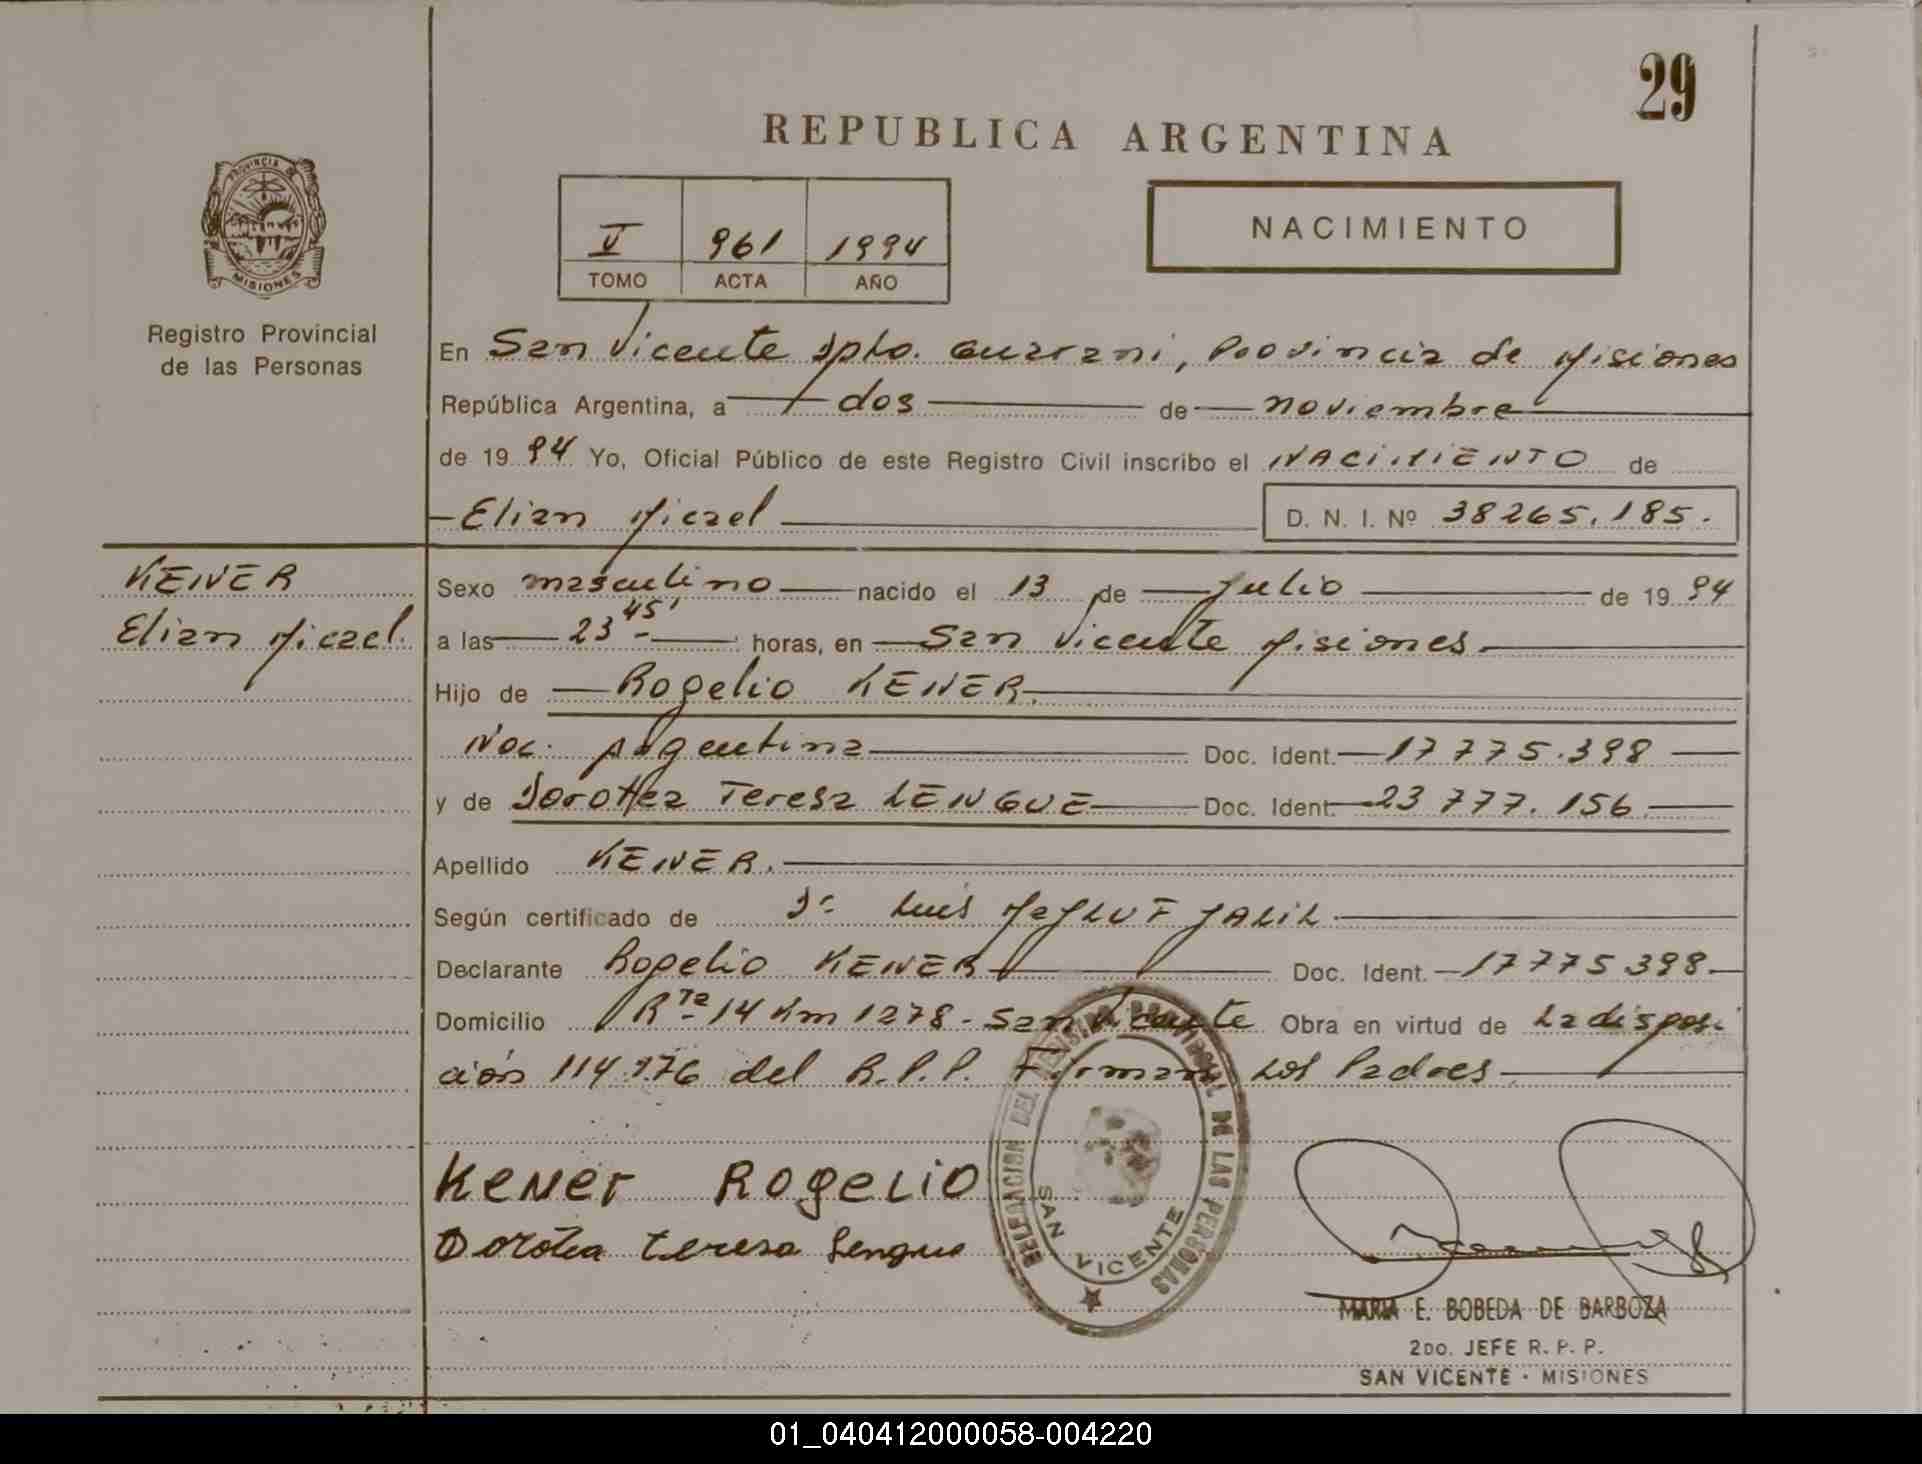 29
REPUBLICA ARGENTINA
PROVINCIA
MISIONES
Registro Provincial
de las Personas
V 961 1994
TOMO ACTA AÑO
NACIMIENTO
En San Vicente Dpto. Guarani, Provincia de Misiones
República Argentina, a dos de noviembre
de 19 94 Yo, Oficial Público de este Registro Civil inscribo el NACIMIENTO de
Elian Micael D. N. I. Nº 38265.185.
KENER
Elian Micael.
Sexo masculino nacido el 13 de Julio de 19 94
a las 23 45' horas, en San Vicente Misiones
Hijo de Rogelio KENER.
Nac. Argentina Doc. Ident. 17 775.398
y de Dorotea Teresa LENGUE Doc. Ident. 23 777.156
Apellido KENER.
Según certificado de Dr Luis JALIL
Declarante Rogelio KENER Doc. Ident. 17775398
Domicilio Rta 14 Km 1278 - San Vicente Obra en virtud de La disposi
ción 114/76 del R.P.P. Firman Los Padres
Kener ROGELIO
Dorotea teresa Lengue
DE LAS PERSONAS
SAN VICENTE
MARIA E. BOBEDA DE BARBOZA
2DO. JEFE R. P. P.
SAN VICENTE - MISIONES
01_040412000058-004220